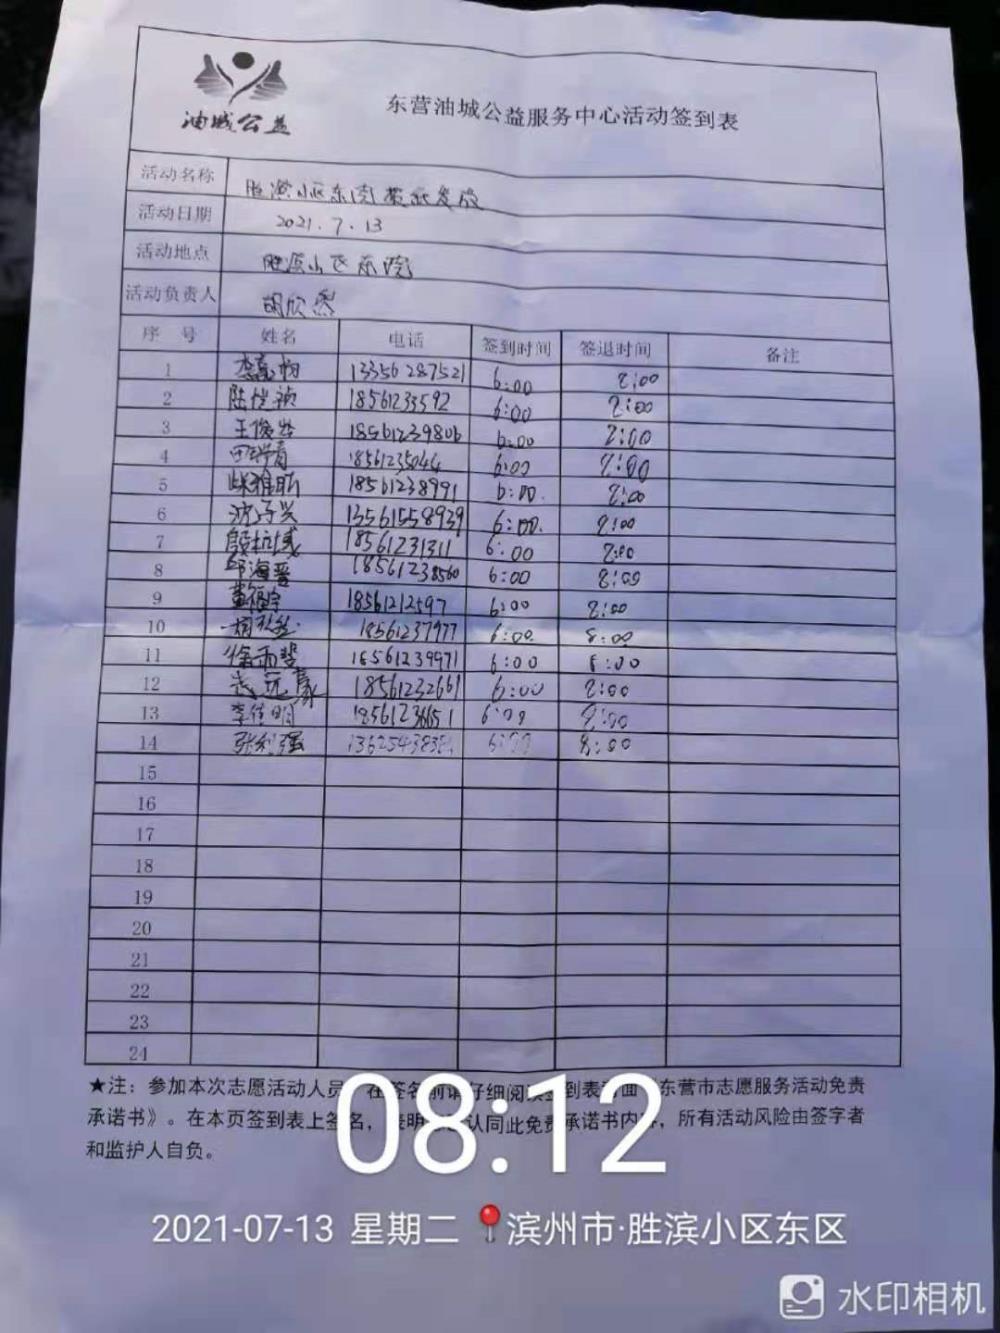 油城公益
东营油城公益服务中心活动签到表
活动名称 胜滨小区东院
活动日期 2021.7.13
活动地点 胜滨小区东院
活动负责人 胡欣然
序号 姓名 电话 签到时间 签退时间 备注
1 13356287521 6:00 8:00
2 18561233592 6:00 8:00
3 王俊 18561239806 6:00 8:00
4 18561235044 6:00 8:00
5 柴雅昕 18561238991 6:00 8:00
6 沈子兴 13561558939 6:00 8:00
7 18561231311 6:00 8:00
8 邱海晋 18561238560 6:00 8:00
9 18561212597 6:00 8:00
10 18561237977 6:00 8:00
11 徐雨斐 18561239971 6:00 8:00
12 18561232661 6:00 8:00
13 李佳明 6:00 8:00
14 张利强 6:00 8:00
15
16
17
18
19
20
21
22
23
24
★注：参加本次志愿活动人员 在签名前请仔细阅读签到表 面 东营市志愿服务活动免责
承诺书》。在本页签到表上签名，表明 认同此免责承诺书内容，所有活动风险由签字者
和监护人自负。
08:12
2021-07-13 星期二 滨州市·胜滨小区东区
水印相机